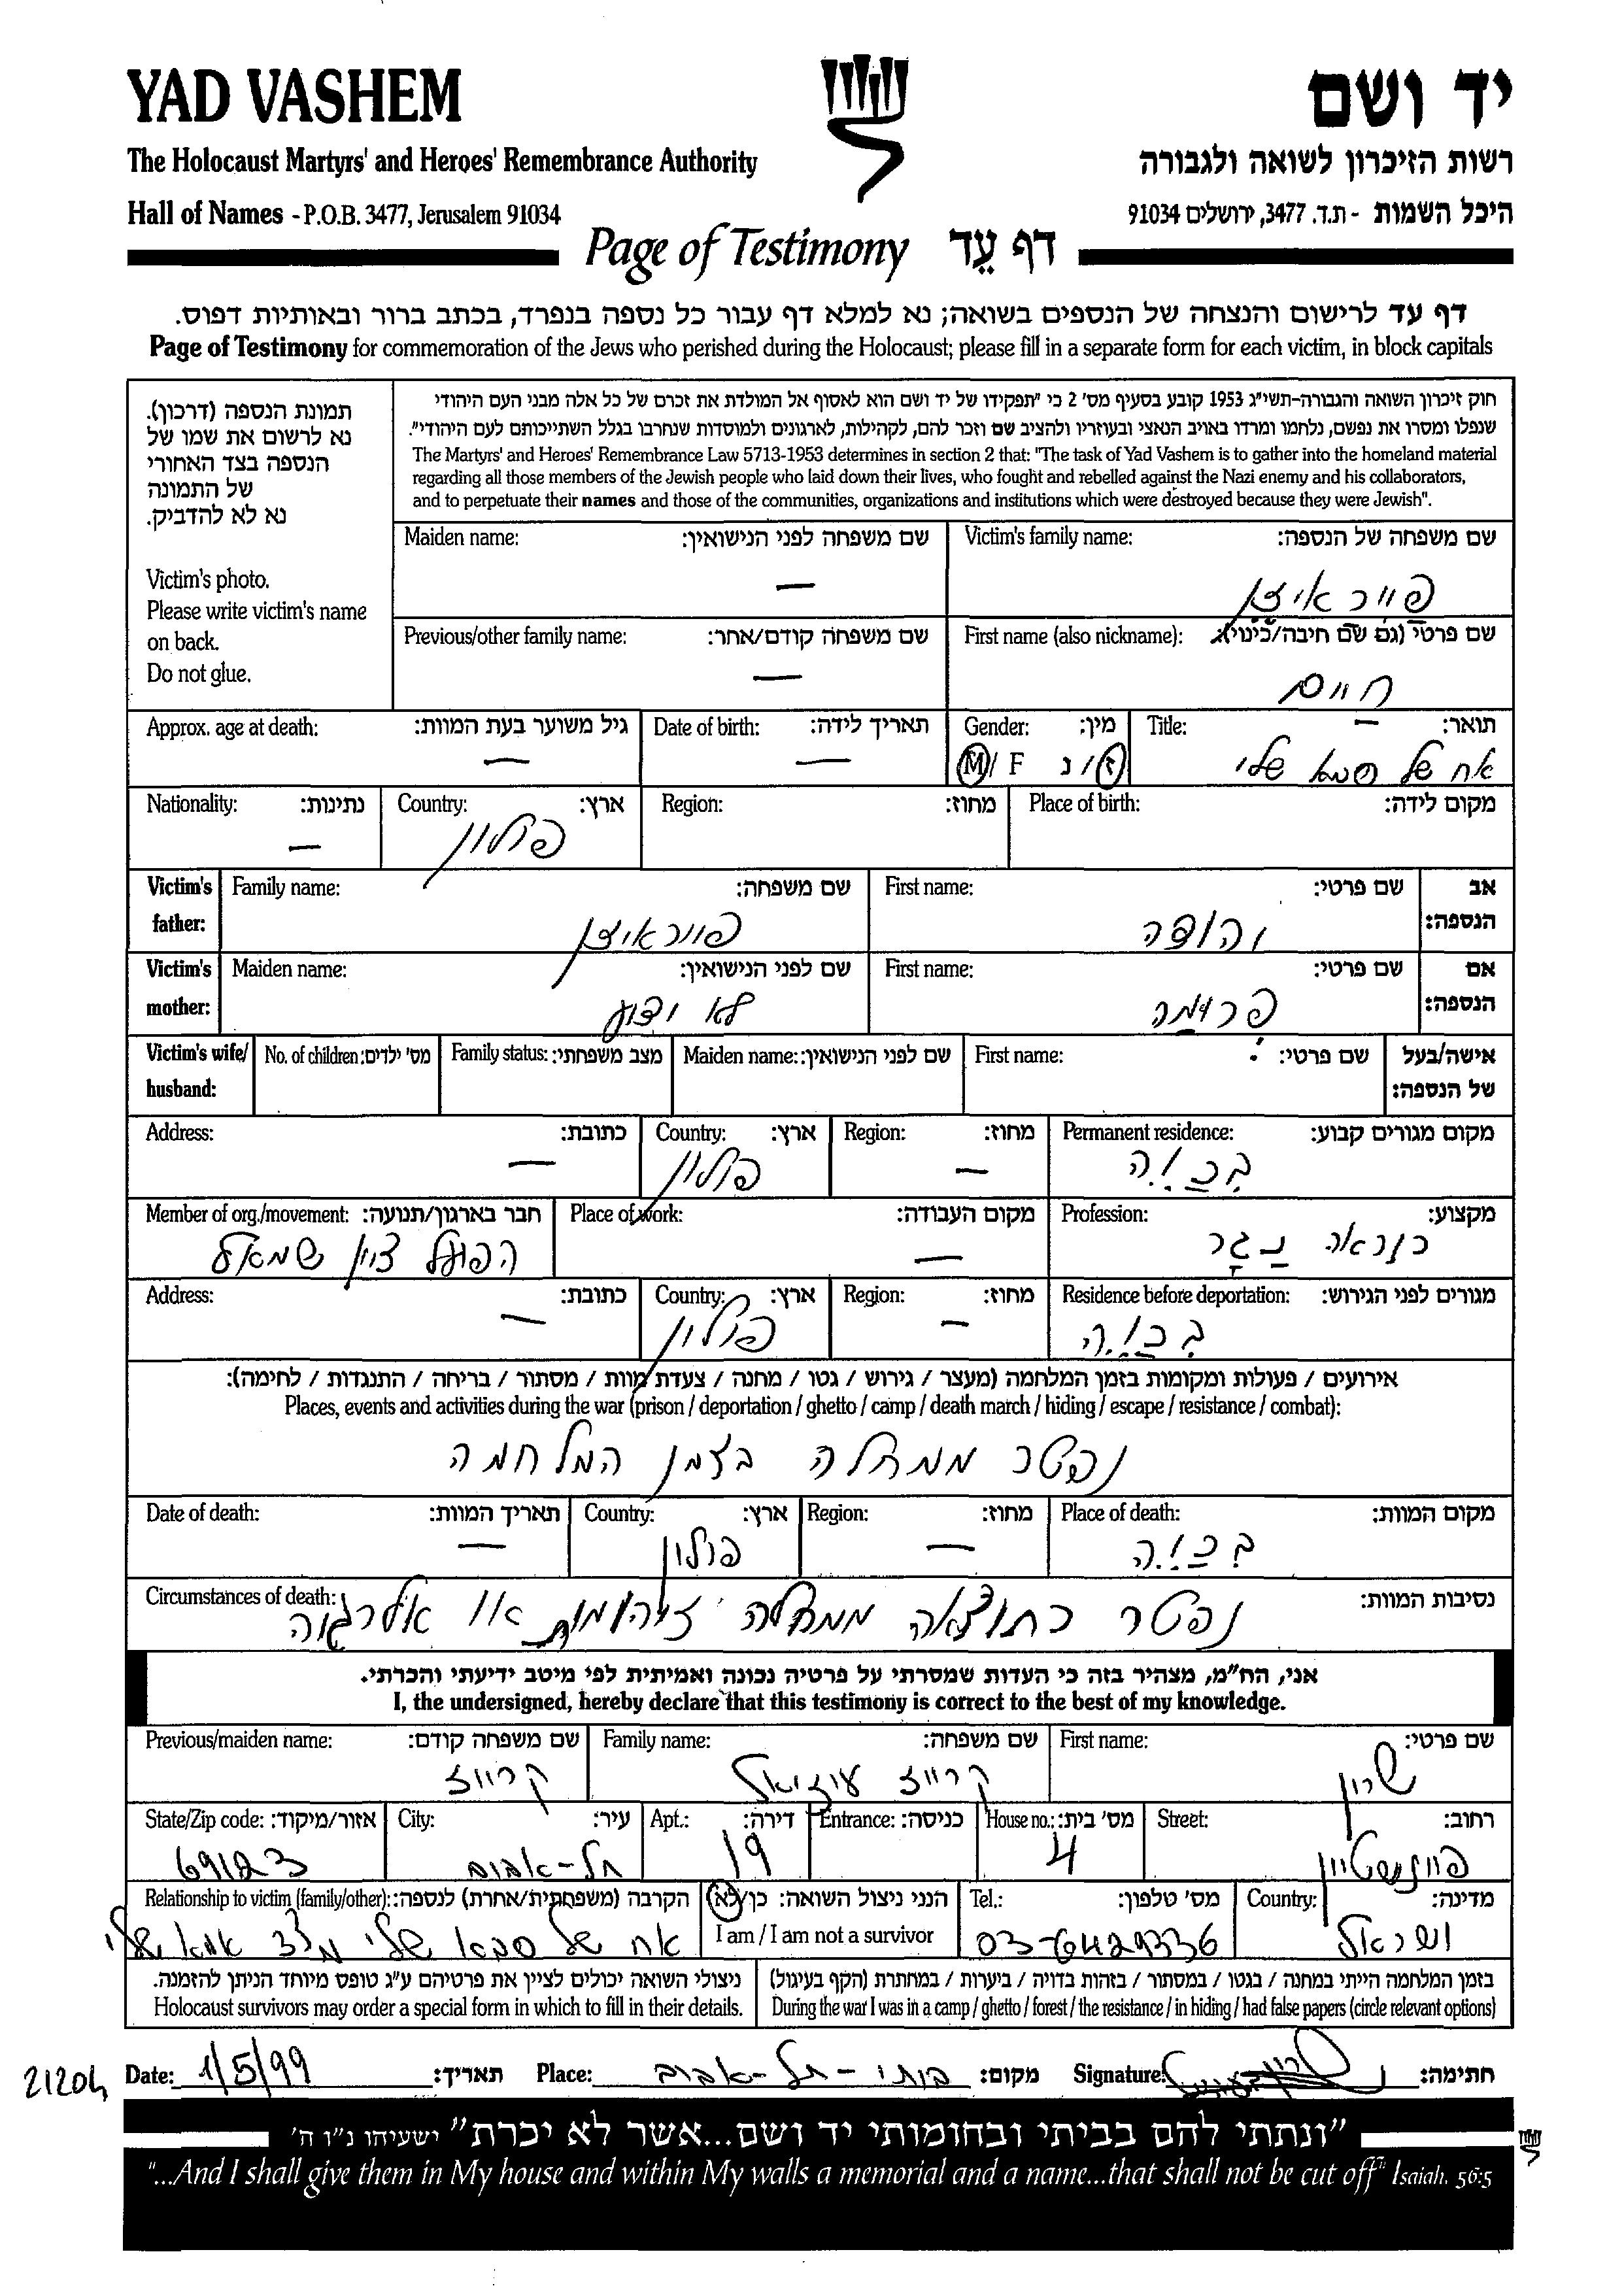 YAD VASHEM
יד ושם
The Holocaust Martyrs' and Heroes' Remembrance Authority
רשות הזיכרון לשואה ולגבורה
Hall of Names - P.O.B. 3477, Jerusalem 91034
היכל השמות - ת.ד. 3477, ירושלים 91034
Page of Testimony דף עֵד
דף עד לרישום והנצחה של הנספים בשואה; נא למלא דף עבור כל נספה בנפרד, בכתב ברור ובאותיות דפוס.
Page of Testimony for commemoration of the Jews who perished during the Holocaust; please fill in a separate form for each victim, in block capitals
תמונת הנספה (דרכון).
נא לרשום את שמו של
הנספה בצד האחורי
של התמונה
נא לא להדביק.
Victim's photo.
Please write victim's name
on back.
Do not glue.
חוק זיכרון השואה והגבורה-תשי"ג 1953 קובע בסעיף מס' 2 כי "תפקידו של יד ושם הוא לאסוף אל המולדת את זכרם של כל אלה מבני העם היהודי
שנפלו ומסרו את נפשם, נלחמו ומרדו באויב הנאצי ובעוזריו ולהציב שם וזכר להם, לקהילות, לארגונים ולמוסדות שנחרבו בגלל השתייכותם לעם היהודי".
The Martyrs' and Heroes' Remembrance Law 5713-1953 determines in section 2 that: "The task of Yad Vashem is to gather into the homeland material
regarding all those members of the Jewish people who laid down their lives, who fought and rebelled against the Nazi enemy and his collaborators,
and to perpetuate their names and those of the communities, organizations and institutions which were destroyed because they were Jewish".
Victim's family name: שם משפחה של הנספה:
פייראיזן
Maiden name: שם משפחה לפני הנישואין:
—
First name (also nickname): שם פרטי (גם שם חיבה/כינוי):
חיים
Previous/other family name: שם משפחה קודם/אחר:
—
Title: תואר:
—
אח של סבא שלי
Gender: מין:
M / F ז / נ
Date of birth: תאריך לידה:
—
Approx. age at death: גיל משוער בעת המוות:
—
Place of birth: מקום לידה:
Region: מחוז:
Country: ארץ:
פולין
Nationality: נתינות:
—
Victim's father: אב הנספה:
First name: שם פרטי:
יהודה
Family name: שם משפחה:
פייראיזן
Victim's mother: אם הנספה:
First name: שם פרטי:
פרומה
Maiden name: שם לפני הנישואין:
לא ידוע
Victim's wife/husband: אישה/בעל של הנספה:
First name: שם פרטי:
Maiden name: שם לפני הנישואין:
Family status: מצב משפחתי:
No. of children: מס' ילדים:
Permanent residence: מקום מגורים קבוע:
Region: מחוז:
—
Country: ארץ:
פולין
Address: כתובת:
—
Profession: מקצוע:
כנראה נַגָר
Place of work: מקום העבודה:
—
Member of org./movement: חבר בארגון/תנועה:
הפועל ציון שמאל
Residence before deportation: מגורים לפני הגירוש:
Region: מחוז:
—
Country: ארץ:
פולין
Address: כתובת:
—
אירועים / פעולות ומקומות בזמן המלחמה (מעצר / גירוש / גטו / מחנה / צעדת מוות / מסתור / בריחה / התנגדות / לחימה):
Places, events and activities during the war (prison / deportation / ghetto / camp / death march / hiding / escape / resistance / combat):
נפטר ממחלה בזמן המלחמה
Place of death: מקום המוות:
Region: מחוז:
—
Country: ארץ:
פולין
Date of death: תאריך המוות:
—
Circumstances of death: נסיבות המוות:
נפטר כתוצאה ממחלה זיהומית או אלרגיה
אני, הח"מ, מצהיר בזה כי העדות שמסרתי על פרטיה נכונה ואמיתית לפי מיטב ידיעתי והכרתי.
I, the undersigned, hereby declare that this testimony is correct to the best of my knowledge.
First name: שם פרטי:
שרון
Family name: שם משפחה:
קרייז עוזיאל
Previous/maiden name: שם משפחה קודם:
קרייז
Street: רחוב:
פיינשטיין
House no.: מס' בית:
4
Entrance: כניסה:
Apt.: דירה:
19
City: עיר:
תל-אביב
State/Zip code: אזור/מיקוד:
69123
Country: מדינה:
ישראל
Tel.: מס' טלפון:
03-6429336
הנני ניצול השואה: כן/לא
I am / I am not a survivor
Relationship to victim (family/other): הקרבה (משפחתית/אחרת) לנספה:
אח של סבא שלי מצד אמא שלי
בזמן המלחמה הייתי במחנה / בגטו / במסתור / בזהות בדויה / ביערות / במחתרת (הקף בעיגול)
During the war I was in a camp / ghetto / forest / the resistance / in hiding / had false papers (circle relevant options)
ניצולי השואה יכולים לציין את פרטיהם ע"ג טופס מיוחד הניתן להזמנה.
Holocaust survivors may order a special form in which to fill in their details.
Date: 1/5/99 תאריך:
Place: ביתי - תל-אביב מקום:
Signature: חתימה:
21204
"ונתתי להם בביתי ובחומותי יד ושם...אשר לא יכרת" ישעיהו נ"ו ה'
"...And I shall give them in My house and within My walls a memorial and a name...that shall not be cut off" Isaiah. 56:5